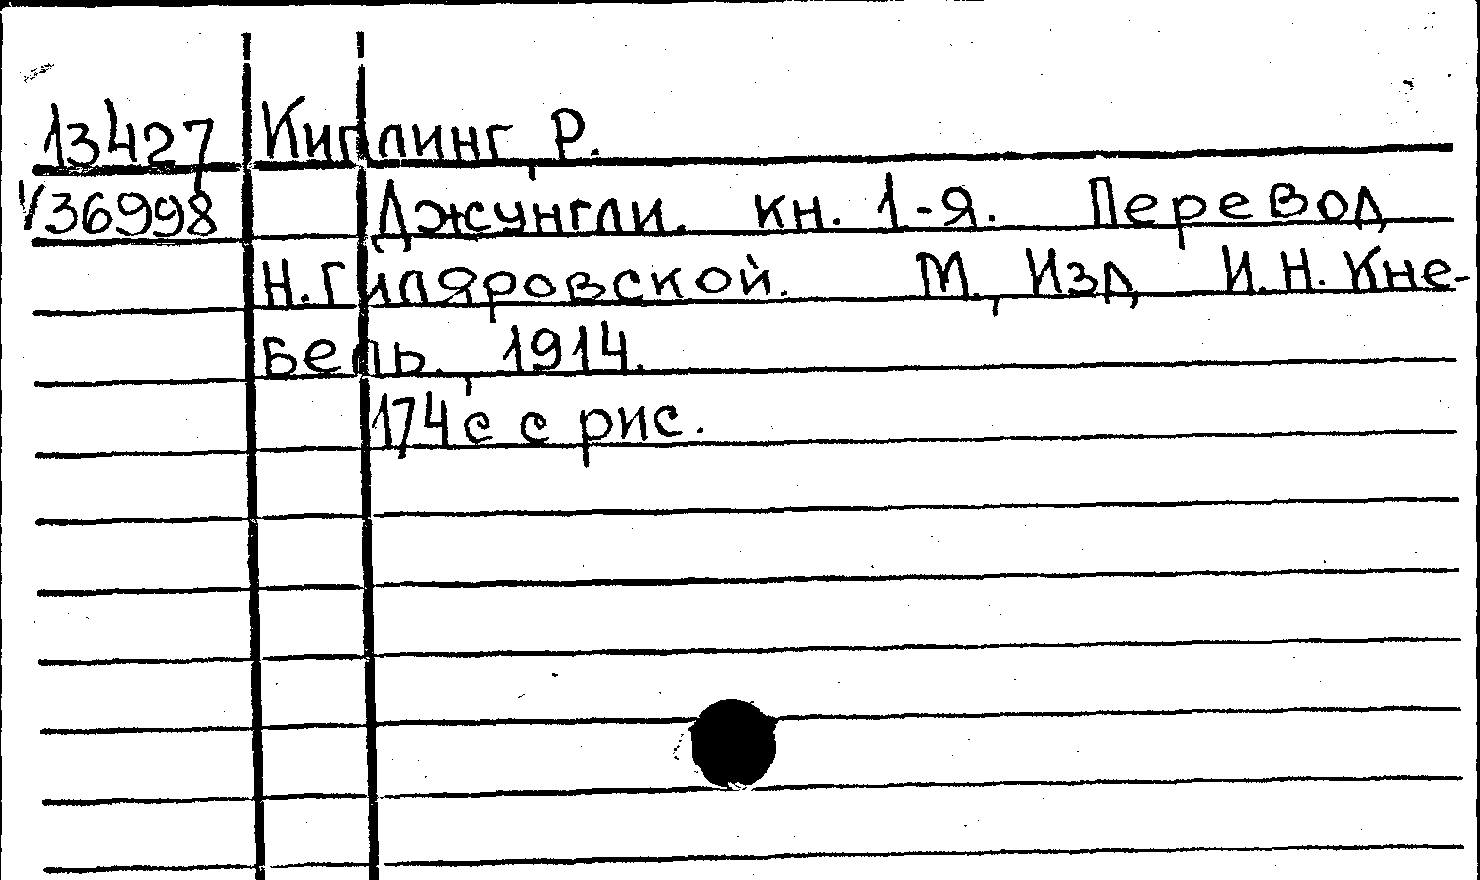 13427 Киплинг, Р.
V36998 Джунгли. кн. 1-я. Перевод
Н. Гиляровской. М., Изд, И.Н. Кне-
бель, 1914.
174с с рис.